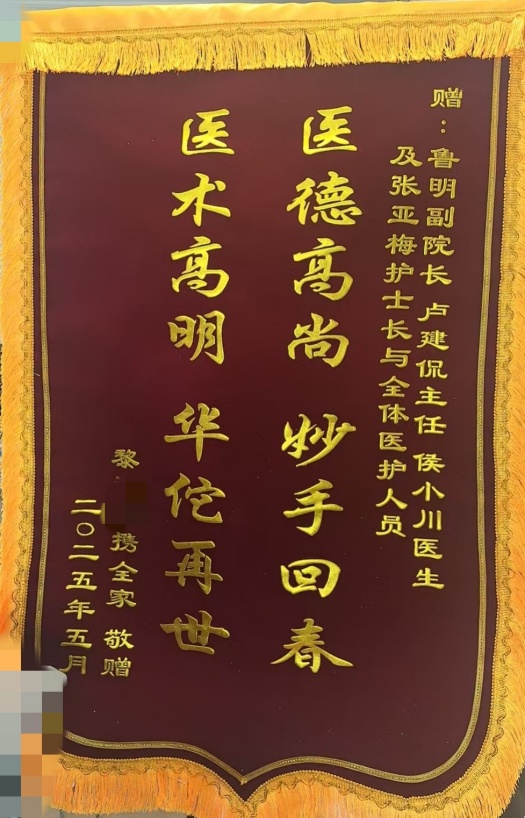 赠：鲁明副院长 卢建侃主任 侯小川医生
及张亚梅护士长与全体医护人员
医德高尚 妙手回春
医术高明 华佗再世
黎 携全家 敬赠
二〇二五年五月